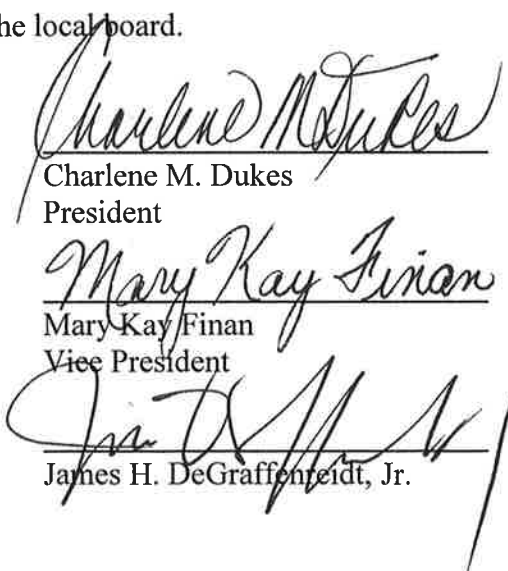 he local board.
Charlene M Dukes
Charlene M. Dukes
President
Mary Kay Finan
Mary Kay Finan
Vice President
James H. DeGraffenreidt, Jr.